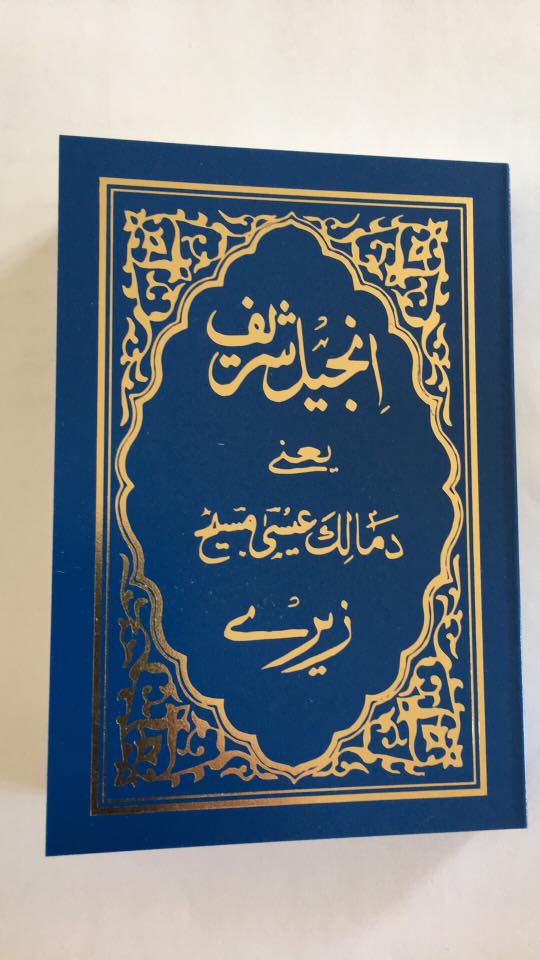 اِنجیل شریف
یعنے
دَمالِکَ عیسٰی مسیح
زیرے